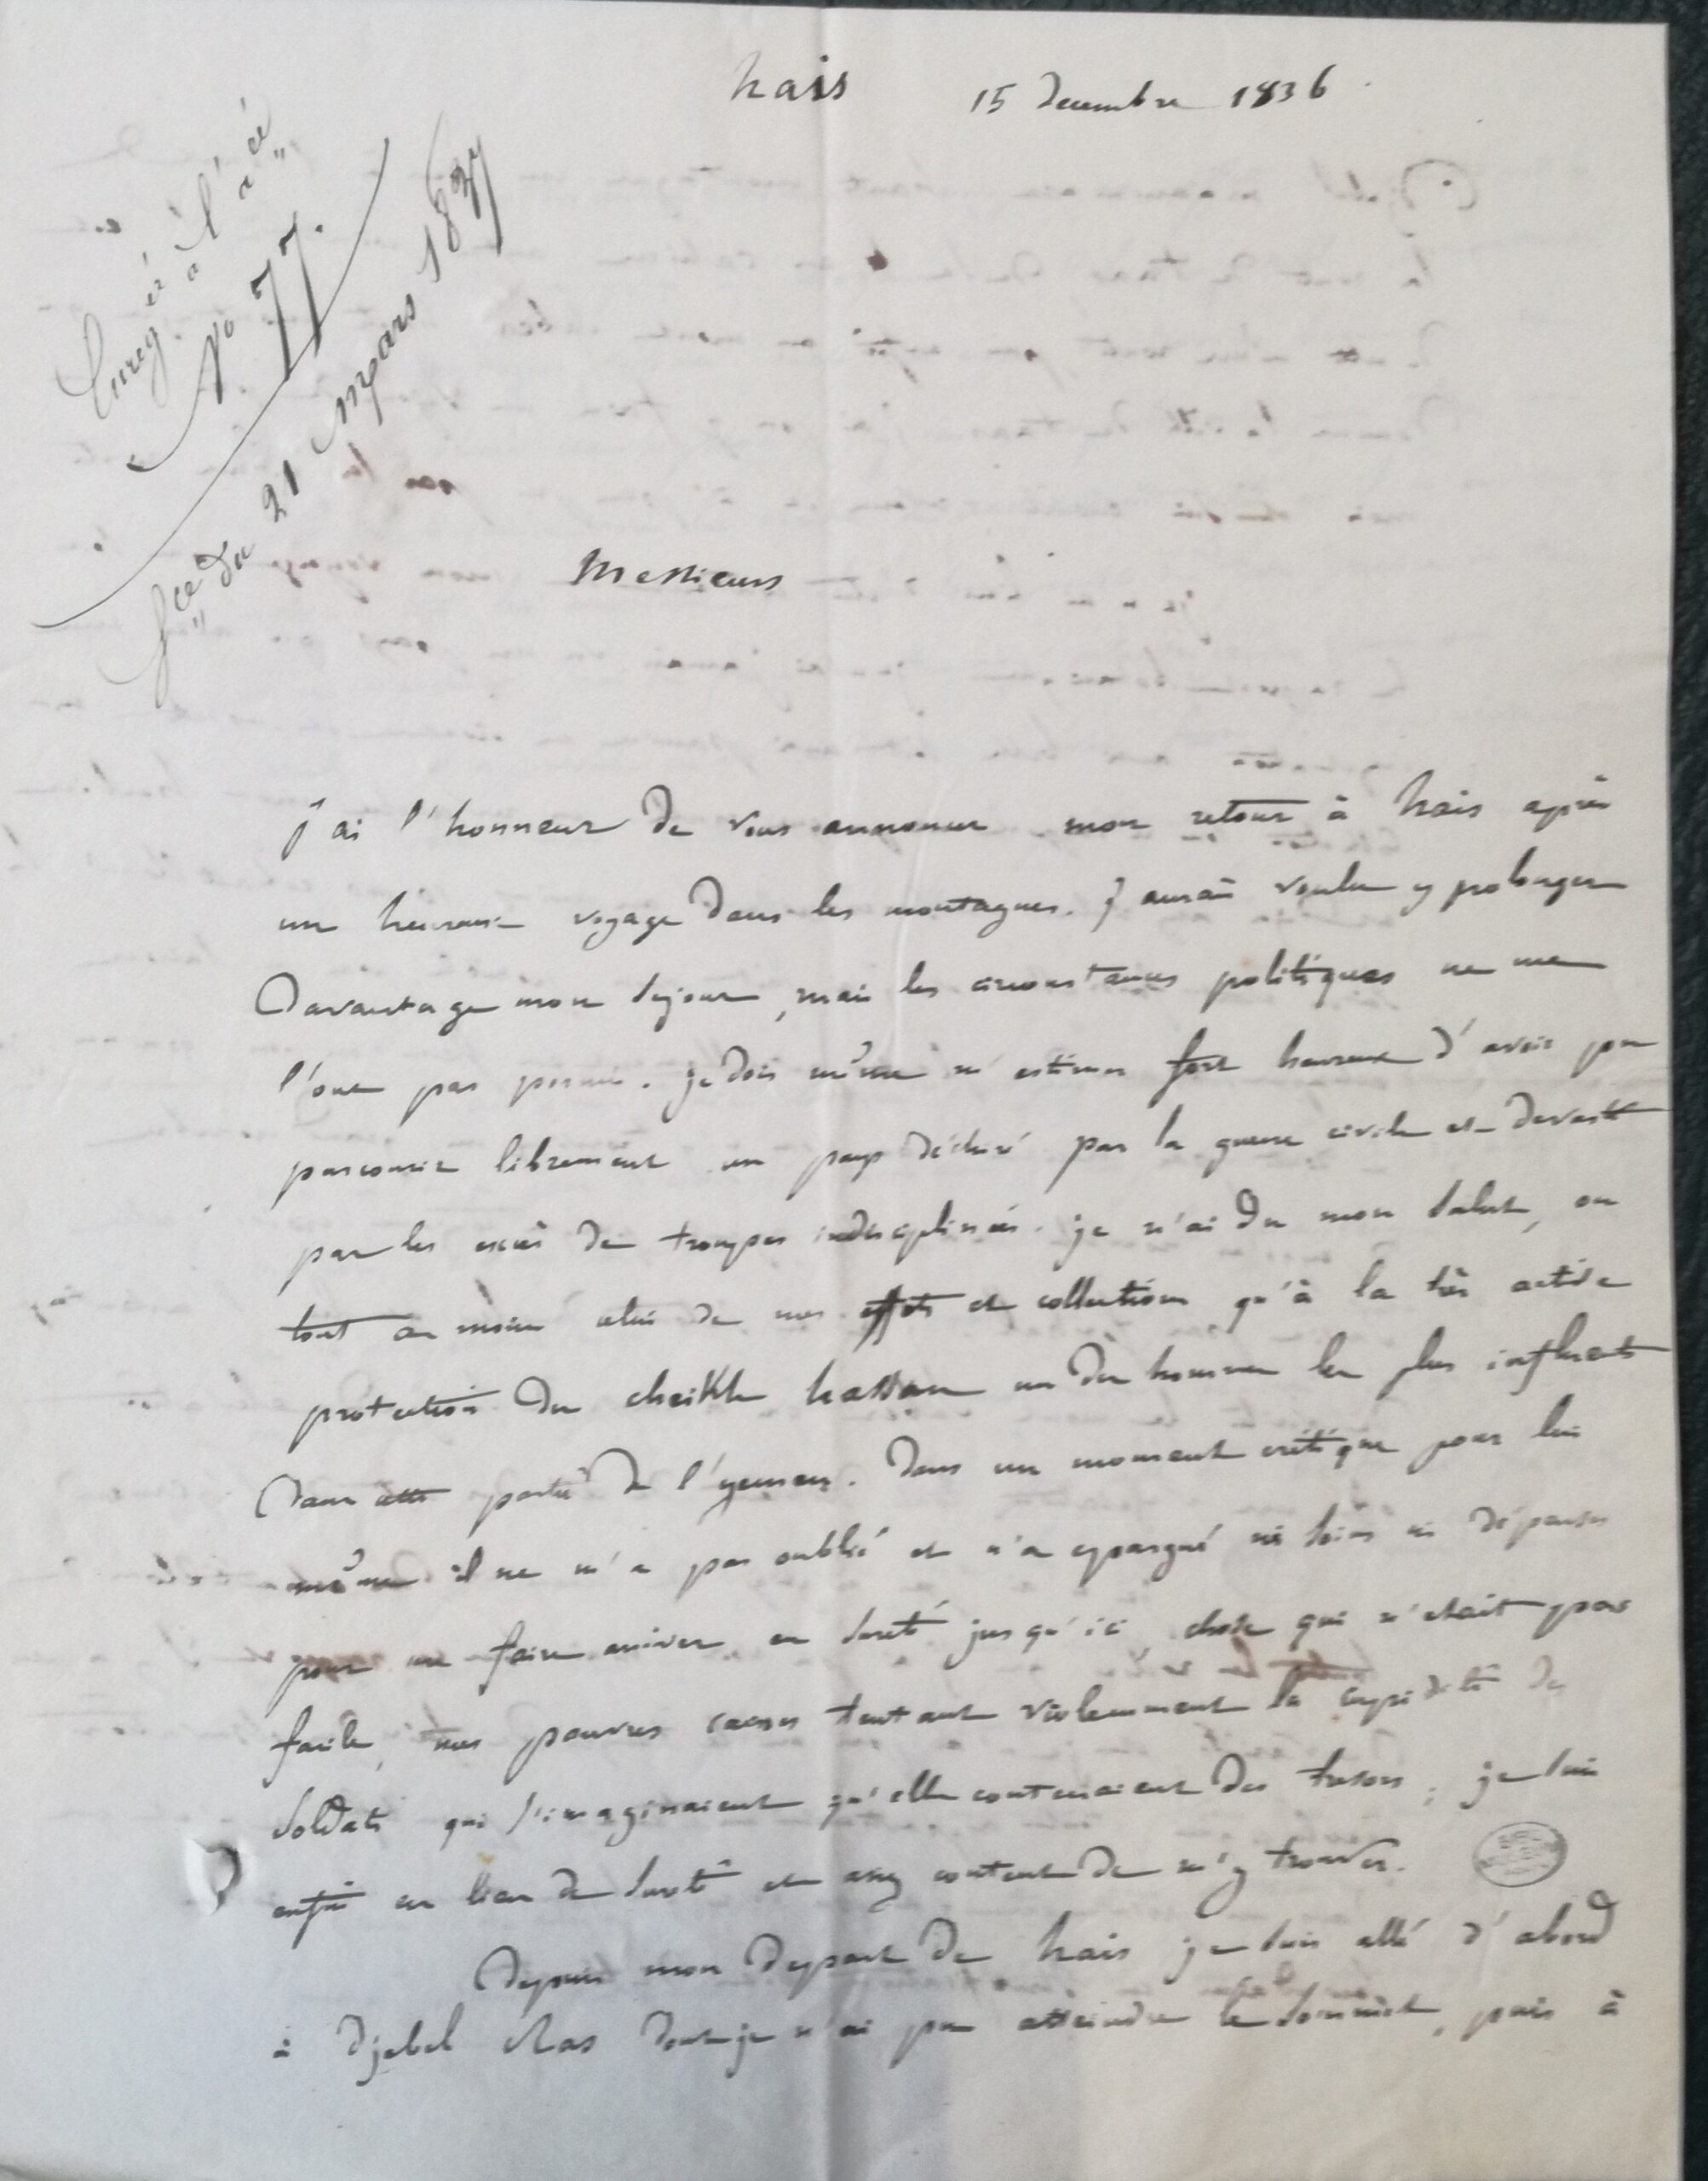 hais 15 decembre 1836
Enreg.é à l'a cé
No 77.
Sce du 21 Mars 1837
Messieurs
j'ai l'honneur de vous annoncer mon retour à hais après
un heureux voyage dans les montagnes. j'aurais voulu y prolonger
davantage mon sejour, mais les circonstances politiques ne me
l'ont pas permis. je dois même m'estimer fort heureux d'avoir pu
parcourir librement un pays déchiré par la guerre civile et devasté
par les excès de troupes indisciplinées. je n'ai du mon salut, ou
tout au moins celui de mes effets et collections qu'à la très active
protection du cheikh hassan un des hommes les plus influents
dans cette partie de l'yemen. dans un moment critique pour lui
même il ne m'a pas oublié et n'a epargné ni soins ni dépenses
pour me faire arriver en sureté jusqu'ici, chose qui n'etait pas
facile, mes pauvres caisses tentant violemment la cupidité des
soldats qui s'imaginaient qu'elles contenaient des tresors; je suis
enfin en lieu de sureté et assez content de m'y trouver.
Depuis mon depart de hais je suis allé d'abord
à djebel Ras dont je n'ai pu atteindre le sommet, puis à